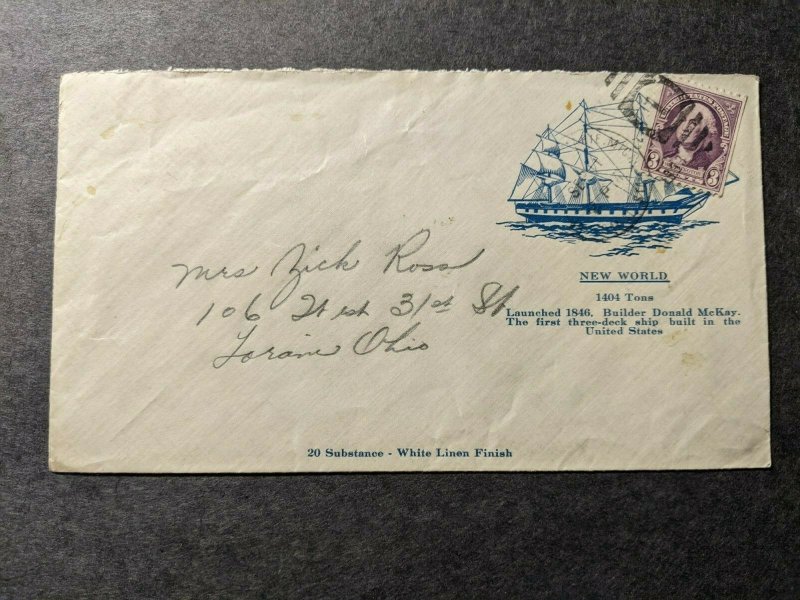 3 3
NEW WORLD
1404 Tons
Launched 1846. Builder Donald McKay.
The first three-deck ship built in the
United States
Mrs Zick Ross
106 West 31st St
Lorain Ohio
20 Substance - White Linen Finish